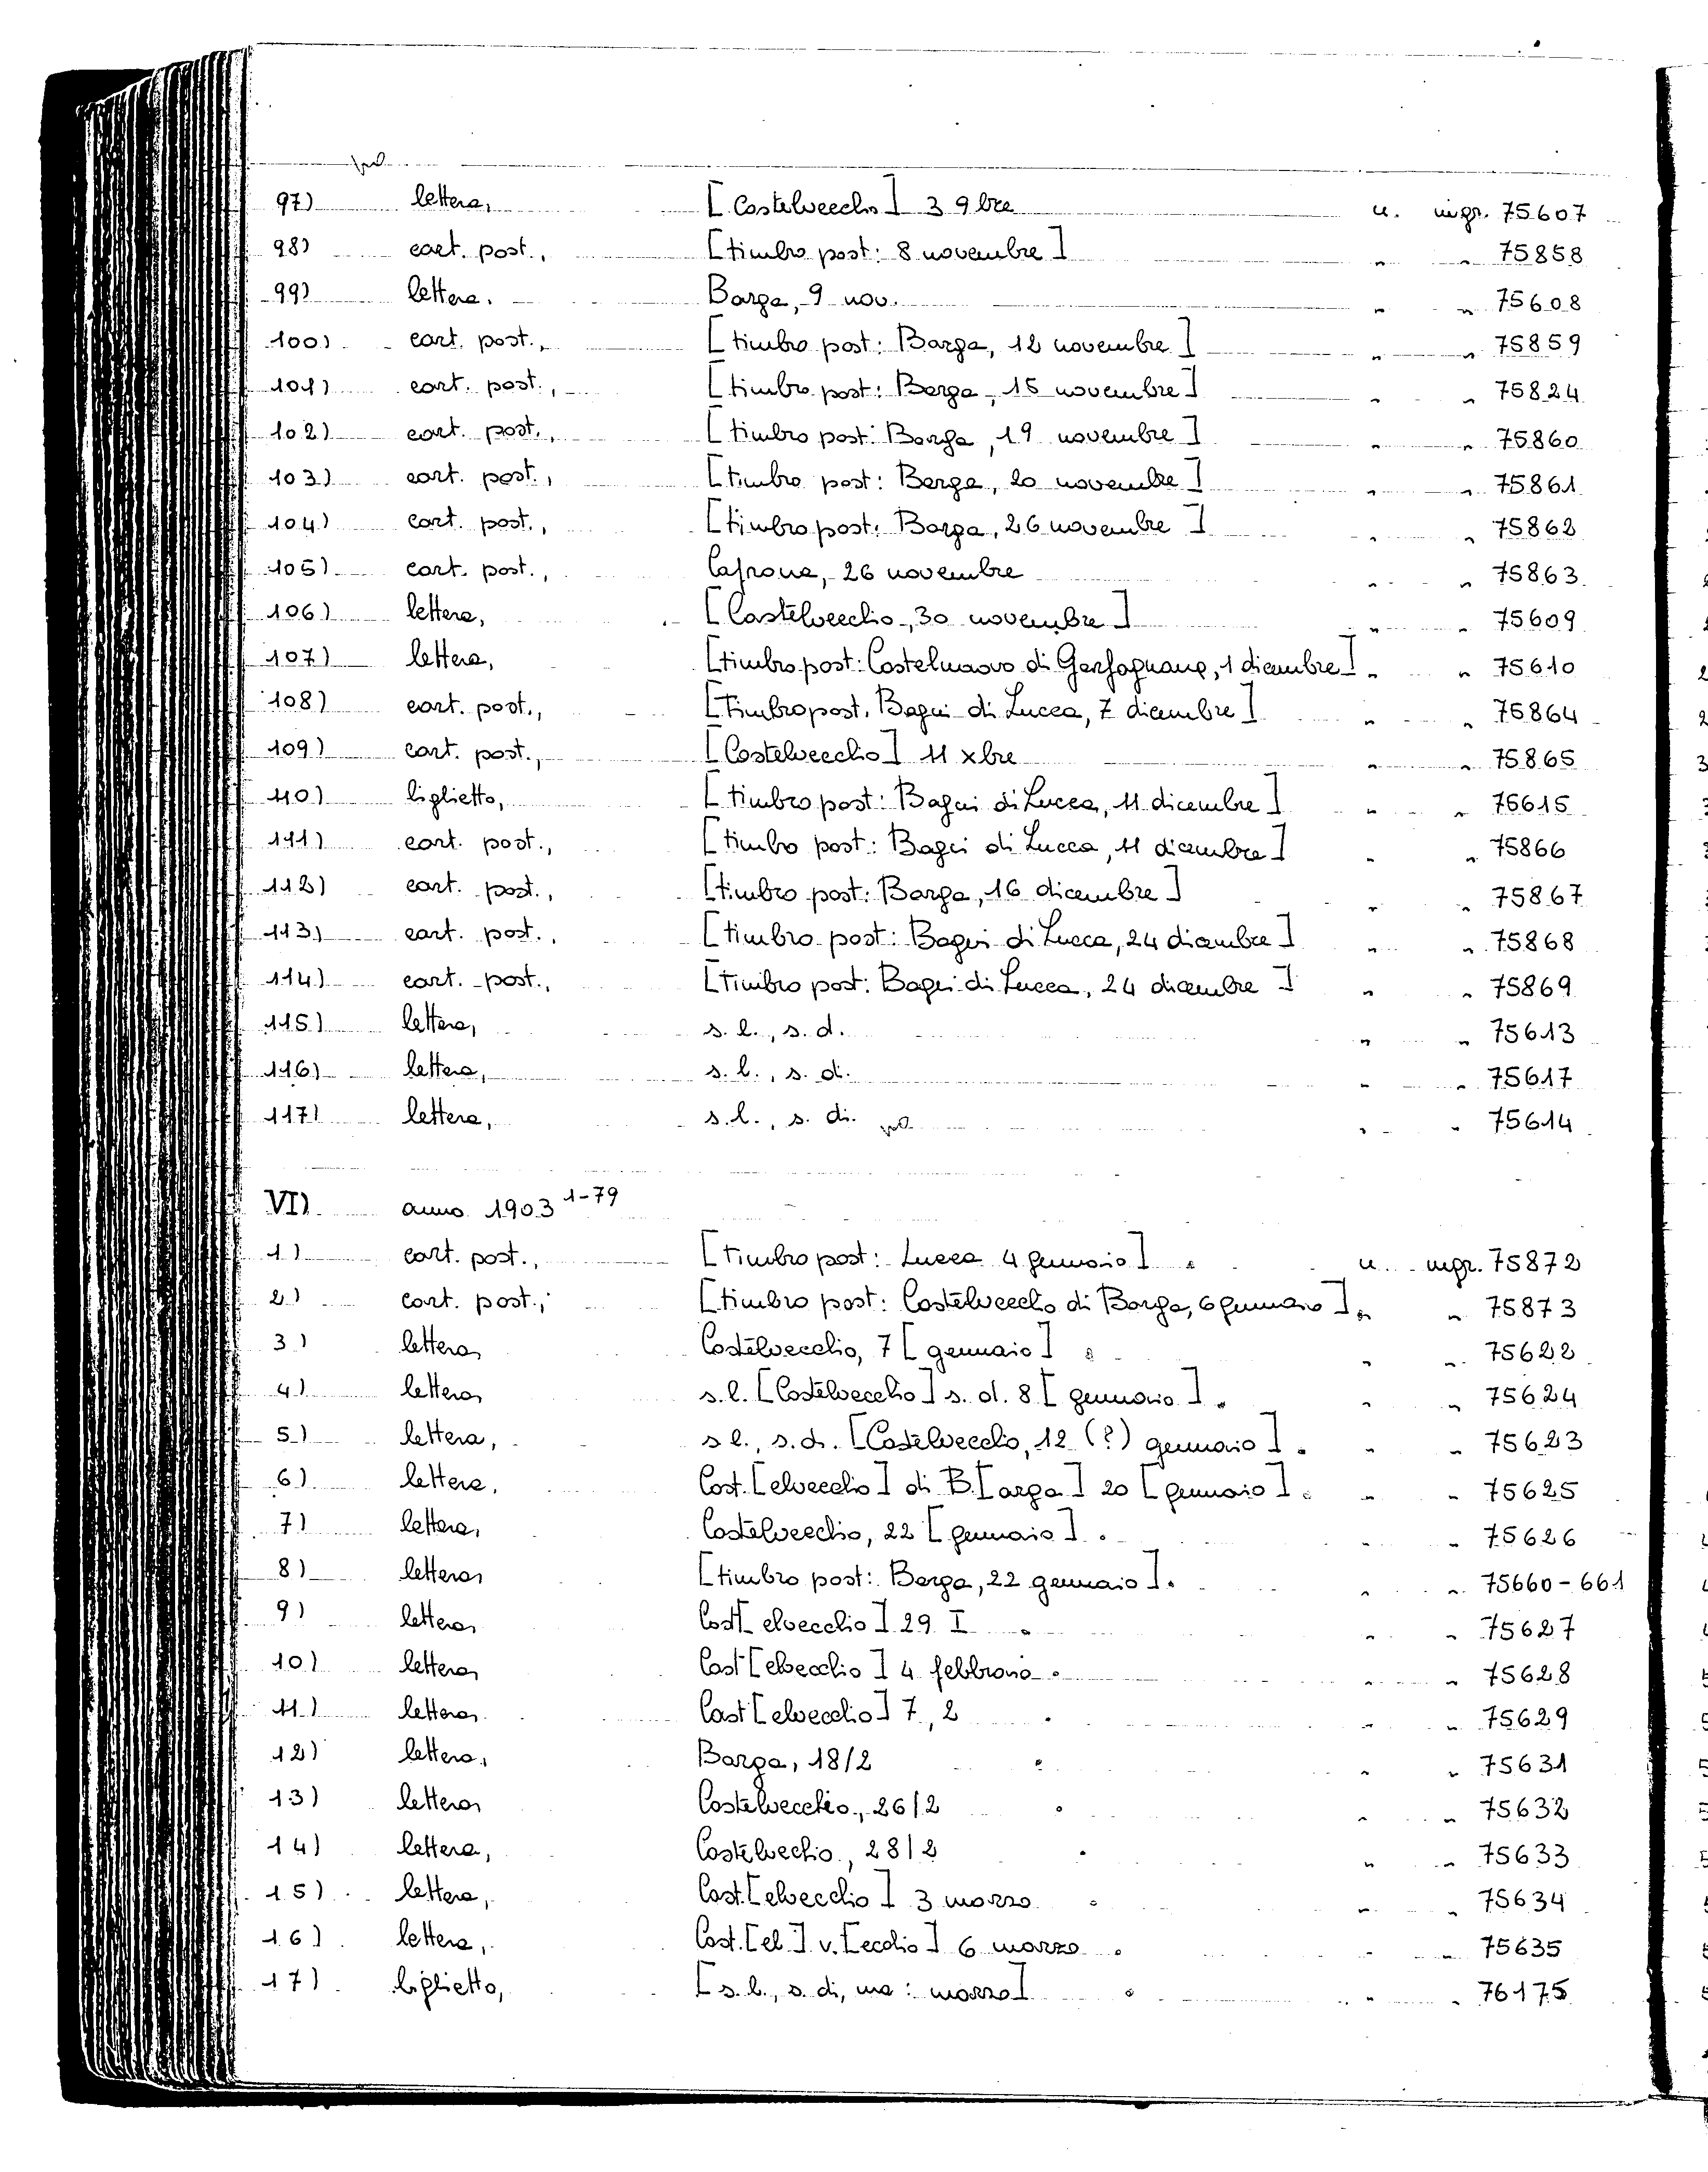 97) lettera, [Castelvecchio] 3 9bre n. ingr. 75607
98) cart. post., [timbro post: 8 novembre] " " 75858
99) lettera. Barga, 9 nov. " " 75608
100) cart. post., [timbro post: Barga, 12 novembre] " " 75859
101) cart. post., [timbro post: Barga, 15 novembre] " " 75824
102) cart. post., [timbro post: Barga, 19 novembre] " " 75860
103) cart. post., [timbro post: Barga, 20 novembre] " " 75861
104) cart. post., [timbro post: Barga, 26 novembre] " " 75862
105) cart. post., Caprona, 26 novembre " " 75863
106) lettera, [Castelvecchio, 30 novembre] " " 75609
107) lettera, [timbro post: Castelnuovo di Garfagnana, 1 dicembre] " " 75610
108) cart. post., [Timbro post. Bagni di Lucca, 7 dicembre] " " 75864
109) cart. post., [Castelvecchio] 11 xbre " " 75865
110) biglietto, [timbro post: Bagni di Lucca, 11 dicembre] " " 75615
111) cart. post., [timbro post: Bagni di Lucca, 11 dicembre] " " 75866
112) cart. post., [timbro post: Barga, 16 dicembre] " " 75867
113) cart. post., [timbro post: Bagni di Lucca, 24 dicembre] " " 75868
114) cart. post., [Timbro post: Bagni di Lucca, 24 dicembre] " " 75869
115) lettera, s. l., s. d. " " 75613
116) lettera, s. l., s. d. " " 75617
117) lettera, s. l., s. di. " " 75614
VI) anno 1903 1-79
1) cart. post., [timbro post: Lucca 4 gennaio] n. ingr. 75872
2) cart. post., [timbro post: Castelvecchio di Barga, 6 gennaio]. " " 75873
3) lettera, Castelvecchio, 7 [gennaio] " " 75622
4) lettera, s. l. [Castelvecchio] s. d. 8 [gennaio]. " " 75624
5) lettera, s l., s. d. [Castelvecchio, 12 (?) gennaio]. " " 75623
6) lettera, Cast. [elvecchio] di B. [arga] 20 [gennaio]. " " 75625
7) lettera, Castelvecchio, 22 [gennaio]. " " 75626
8) lettera, [timbro post: Barga, 22 gennaio]. " " 75660-661
9) lettera, Cast[elvecchio] 29 I " " 75627
10) lettera, Cast[elvecchio] 4 febbraio. " " 75628
11) lettera, Cast[elvecchio] 7, 2 . " " 75629
12) lettera, Barga, 18/2 " " 75631
13) lettera, Castelvecchio, 26/2 " " 75632
14) lettera, Castelvechio, 28/2 . " " 75633
15) lettera, Cast. [elvecchio] 3 marzo " " 75634
16) lettera, Cast. [el] v. [ecchio] 6 marzo . " " 75635
17) biglietto, [s. l., s. di, ma: marzo] " " 76175